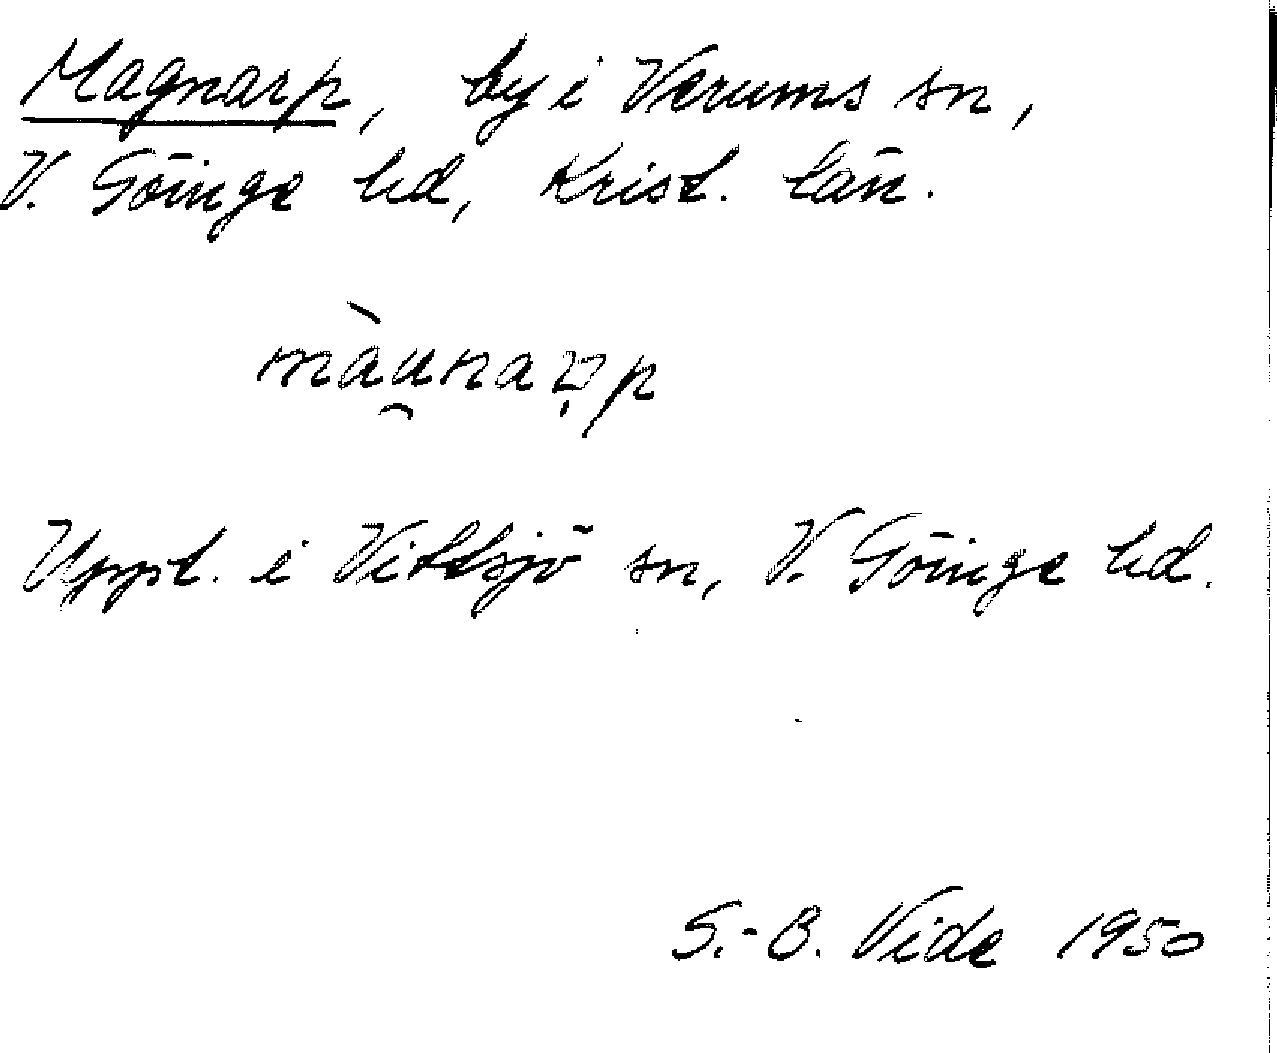 Magnarp, by i Verums sn,
V. Göinge hd, Krist. län.
màu̯naṿp
Uppt. i Vittsjö sn, V. Göinge hd.
S.-B. Vide 1950